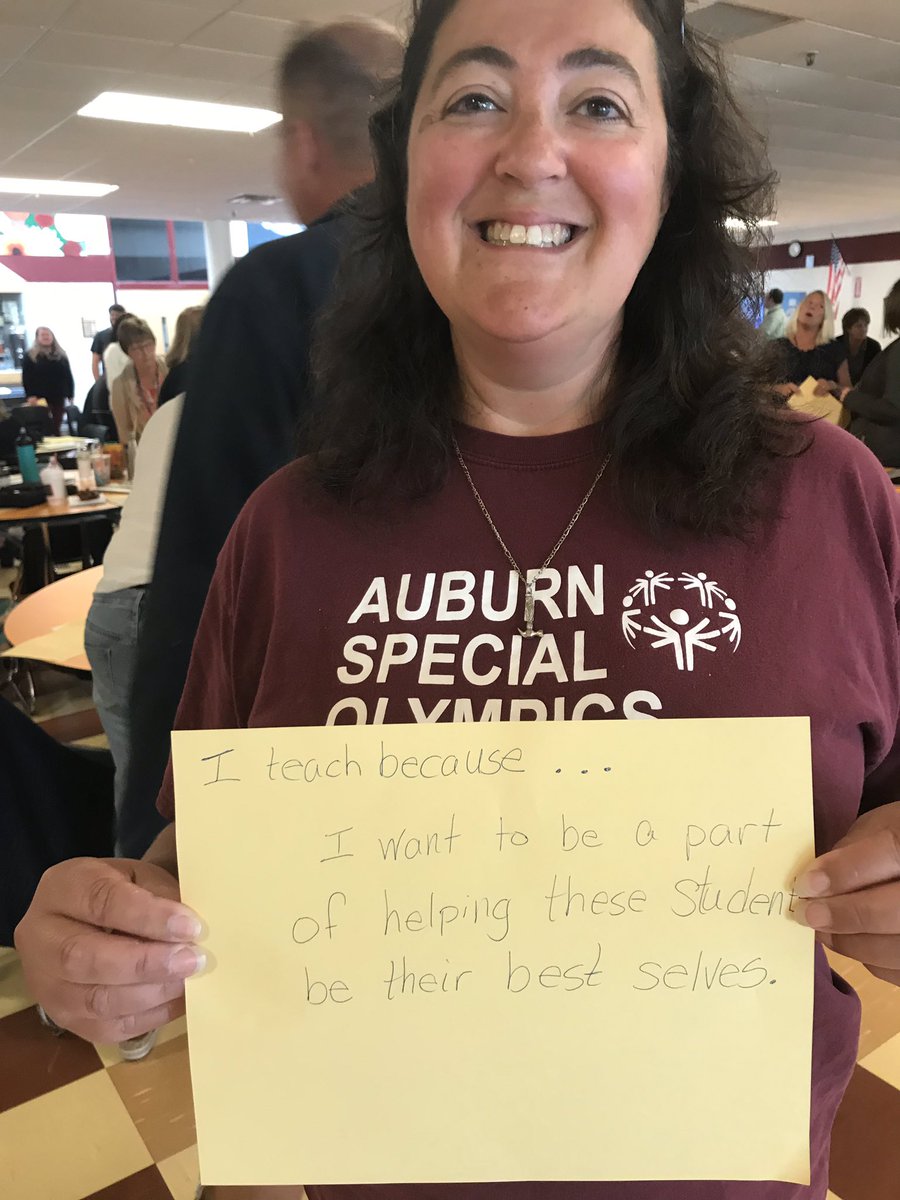 AUBURN
SPECIAL
OLYMPICS
I teach because ...
I want to be a part
of helping these Student
be their best selves.